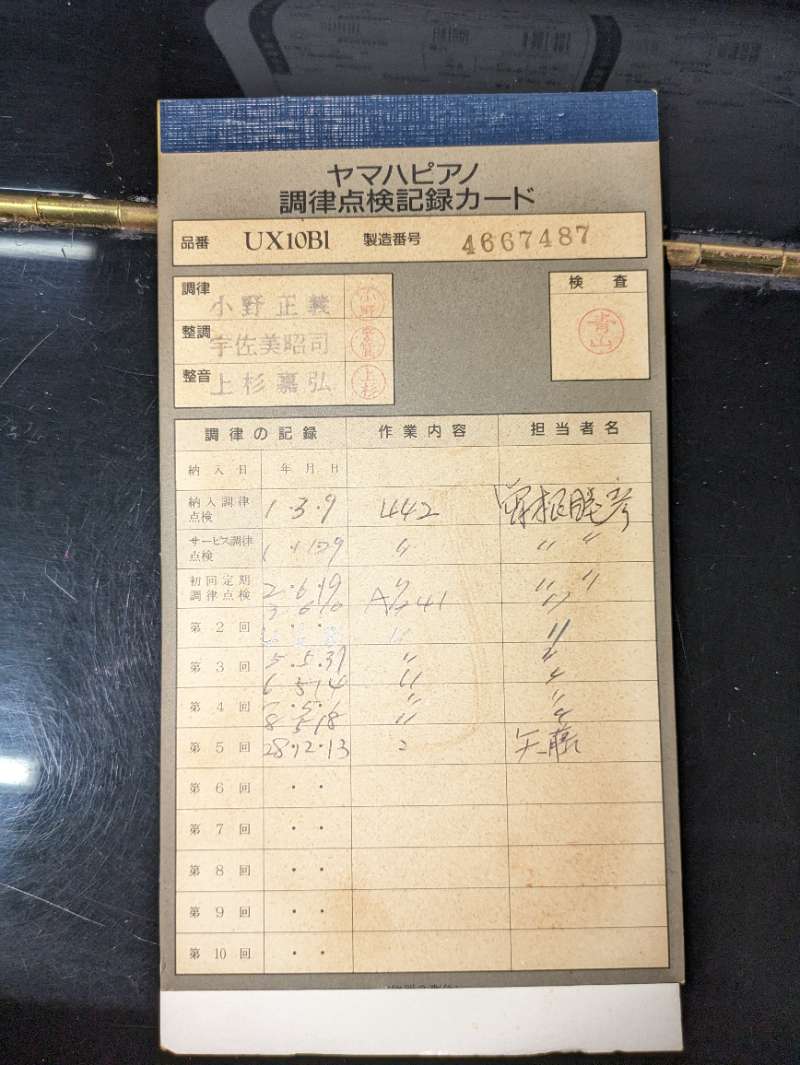 ヤマハピアノ
調律点検記録カード
品番 UX10Bl 製造番号 4667487
調律 小野正義 小野
検査
青山
整調 宇佐美昭司
整音 上杉嘉弘 上杉
調律の記録 作業内容 担当者名
納入日 年月日
納入調律点検 1・3・9 442 曽根勝彦
サービス調律点検 1 〃 〃 〃
初回定期調律点検 2・6・19 〃 〃 〃
3 6 〃
第2回 ・・ 〃 〃
第3回 5・5・31 〃 〃
6 5 14 〃 〃
第4回 5 〃 〃
8 5 18 〃 〃
第5回 28・12・13
第6回 ・・
第7回 ・・
第8回 ・・
第9回 ・・
第10回 ・・